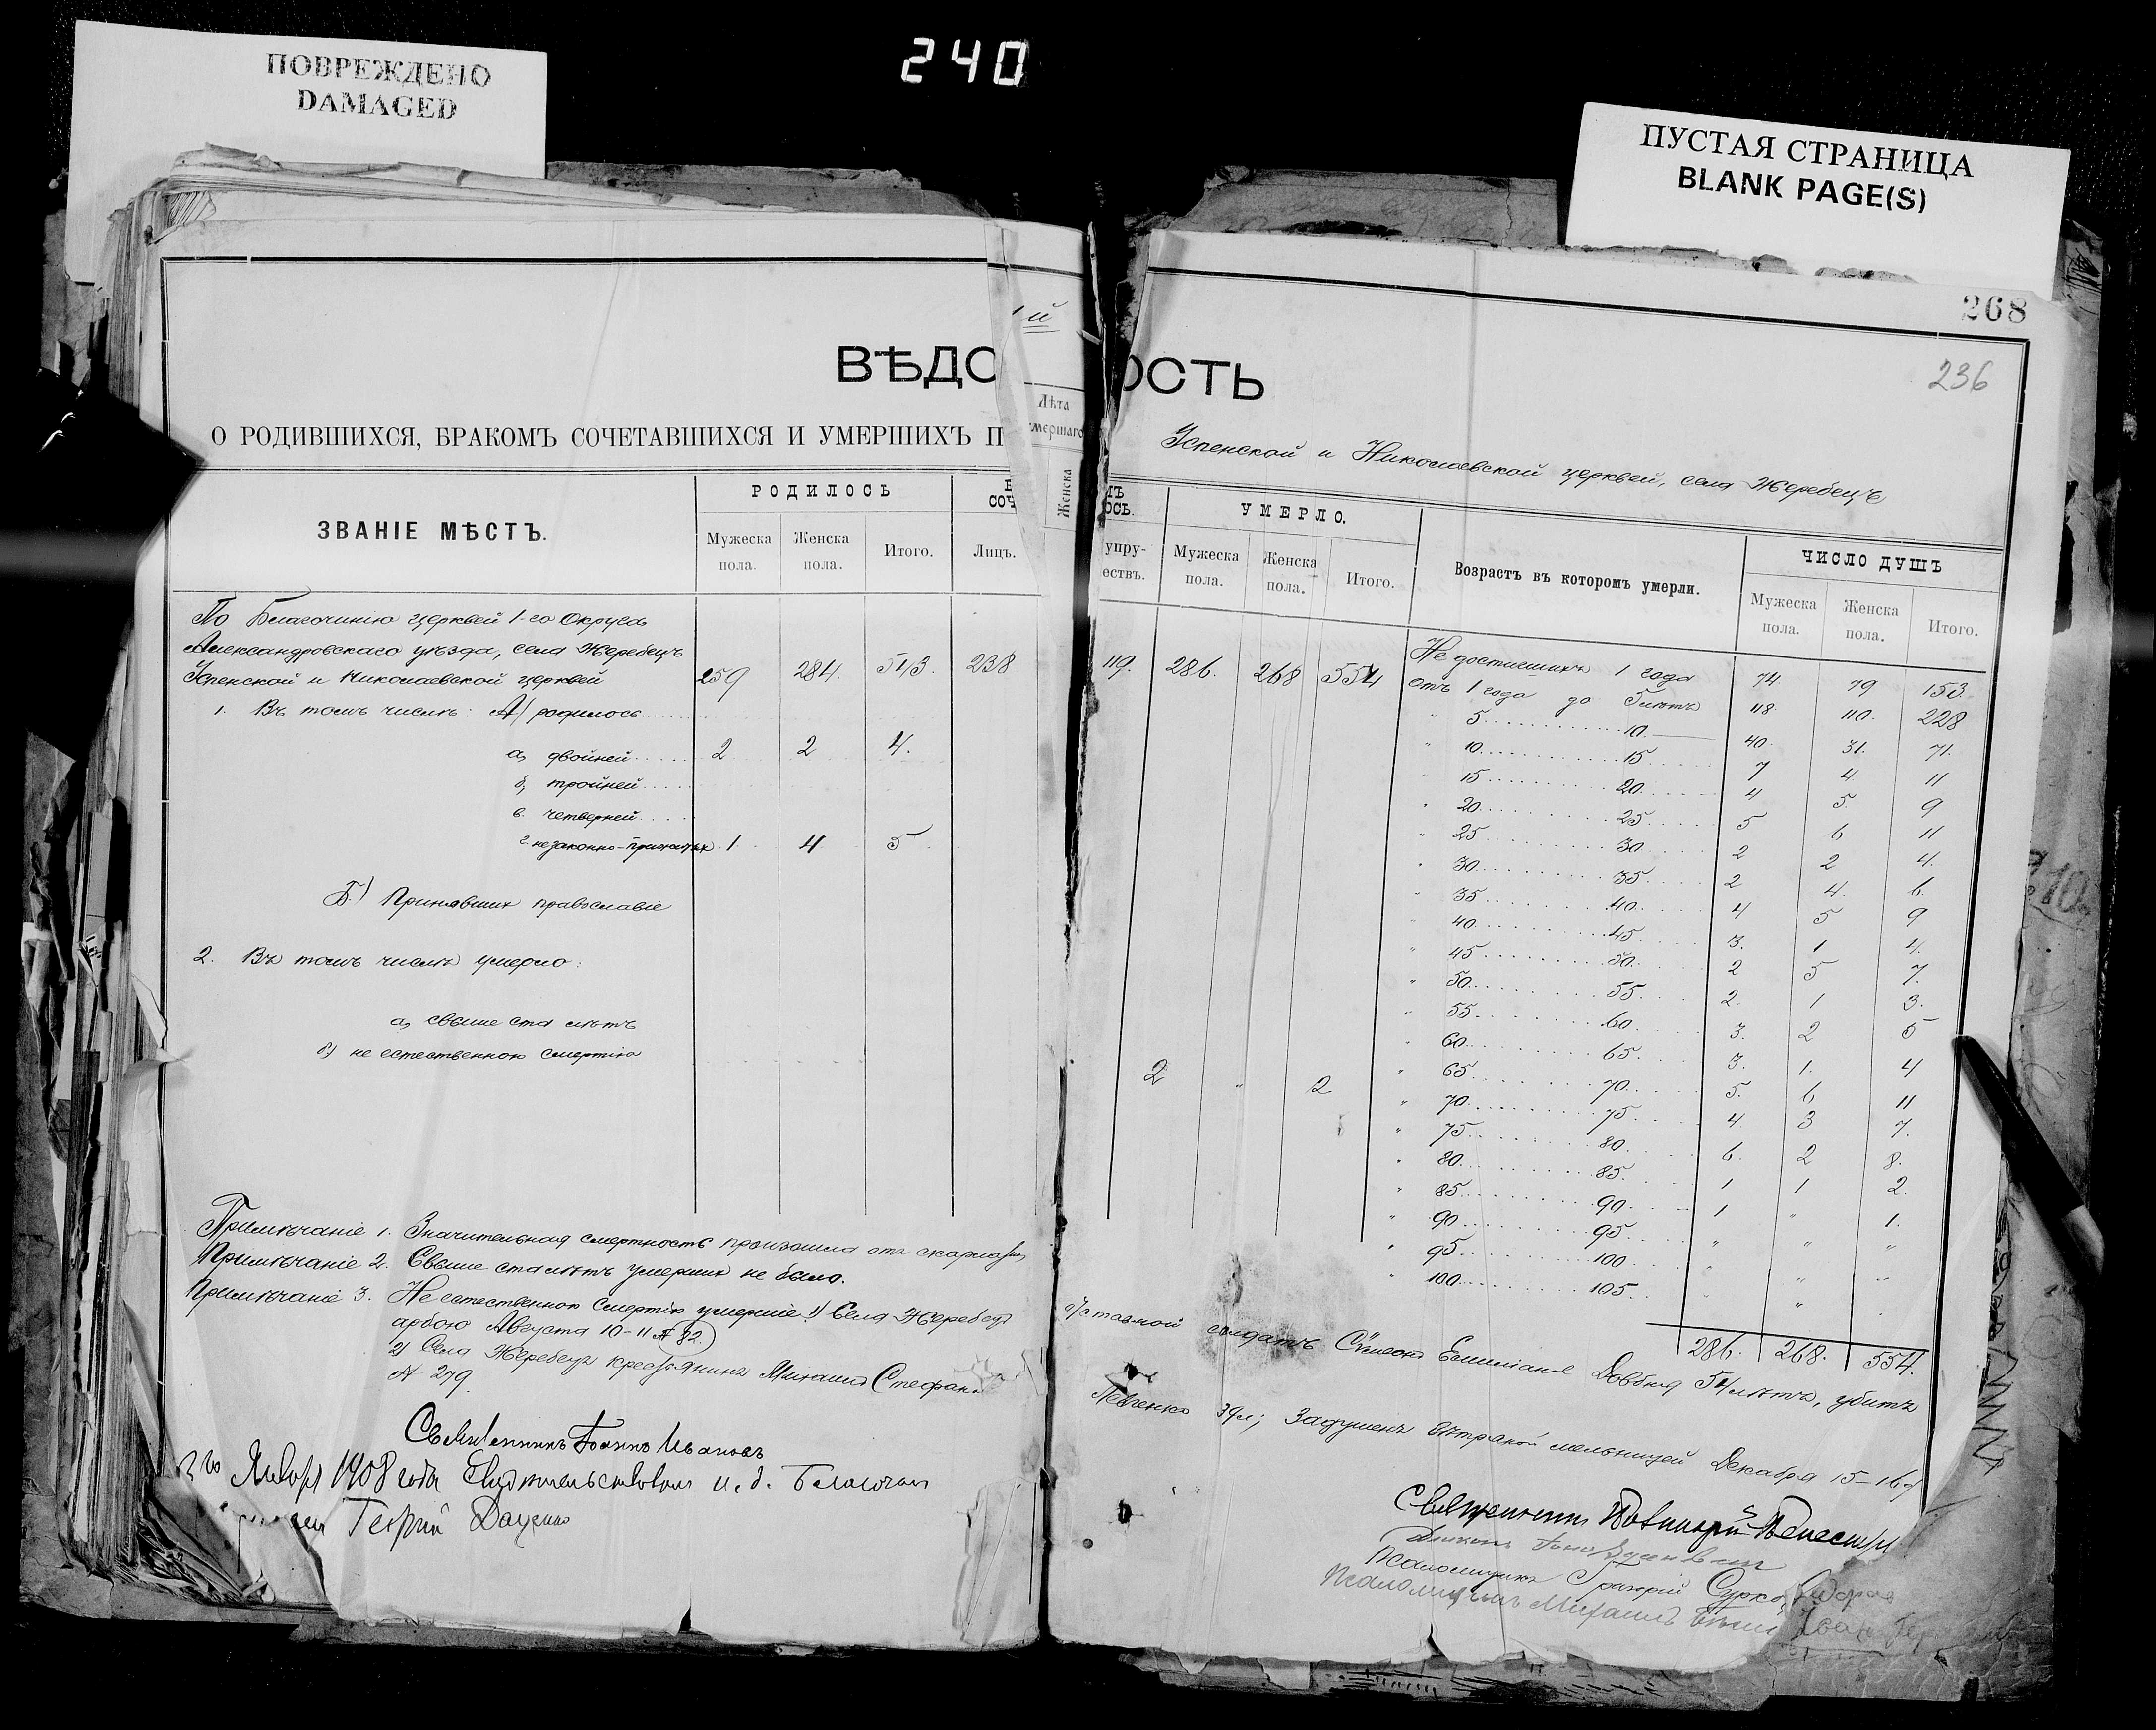 240
ПОВРЕЖДЕНО
DAMAGED
ПУСТАЯ СТРАНИЦА
BLANK PAGE(S)
268
236
й
ВѢДО
ОСТЬ
Лѣта
мершаго
Женска
О РОДИВШИХСЯ, БРАКОМЪ СОЧЕТАВШИХСЯ И УМЕРШИХЪ П
Успенской и Николаевской церквей, села Жеребецъ
ЗВАНІЕ МѢСТЪ.
РОДИЛОСЬ
СОЧ
Мужеска пола.
Женска пола.
Итого.
Лицъ.
ОСЬ.
упру-
ествъ.
УМЕРЛО.
Мужеска пола.
Женска пола.
Итого.
Возрастъ въ которомъ умерли.
ЧИСЛО ДУШЪ
Мужеска пола.
Женска пола.
Итого.
По Благочинію церквей 1-го Округа
Александровскаго уѣзда, села Жеребецъ
Успенской и Николаевской церквей 259 284. 543. 238
1. Въ томъ числѣ: А) родилось
а, двойней 2 2 4.
б, тройней
в. четверней
г. незаконно-прижитых 1 4 5
Б.) Принявших православіе
2. Въ томъ числѣ умерло:
а, свыше ста лѣтъ
б) не естественною смертію
Примѣчаніе 1. Значительная смертность произошла отъ скарла
Примѣчаніе 2. Свыше ста лѣтъ умерших не было.
Примѣчаніе 3. Не естественною смертію умершіе: 1) Села Жеребец
арбою Августа 10-11 № 82.
2) Села Жеребец крестьянинъ Михаилъ Стефан
№ 279.
Священникъ Іоаннъ Ивановъ
Января 1908 года Свидѣтельствовалъ и. д. Благочин
Георгій Даценко
119. 286. 268 554
2 " 2
Не достигших 1 года 74 79 153
отъ 1 года до 5 лѣтъ 118 110. 228
" 5 10 40 31. 71.
" 10 15 7 4. 11
" 15 20 4 5. 9
" 20 25 5 6 11
" 25 30 2 2 4.
" 30 35 2 4. 6.
" 35 40 4 5 9
" 40 45 3. 1 4.
" 45 50 2 5 7.
" 50 55 2. 1 3.
" 55 60 3. 2 5
" 60 65 3. 1. 4
" 65 70 5. 6 11
" 70 75 4. 3 7.
" 75 80 6. 2 8.
" 80 85 1 1 2.
" 85 90 1 " 1.
" 90 95 " " "
" 95 100 " " "
" 100 105 " "
286. 268. 554.
солдатъ Довбня 54 лѣтъ, убитъ
39 л; Задушенъ вѣтряной мельницей Декабря 15-16
Священникъ
Псаломщикъ Григорій
Псаломщикъ Михаилъ